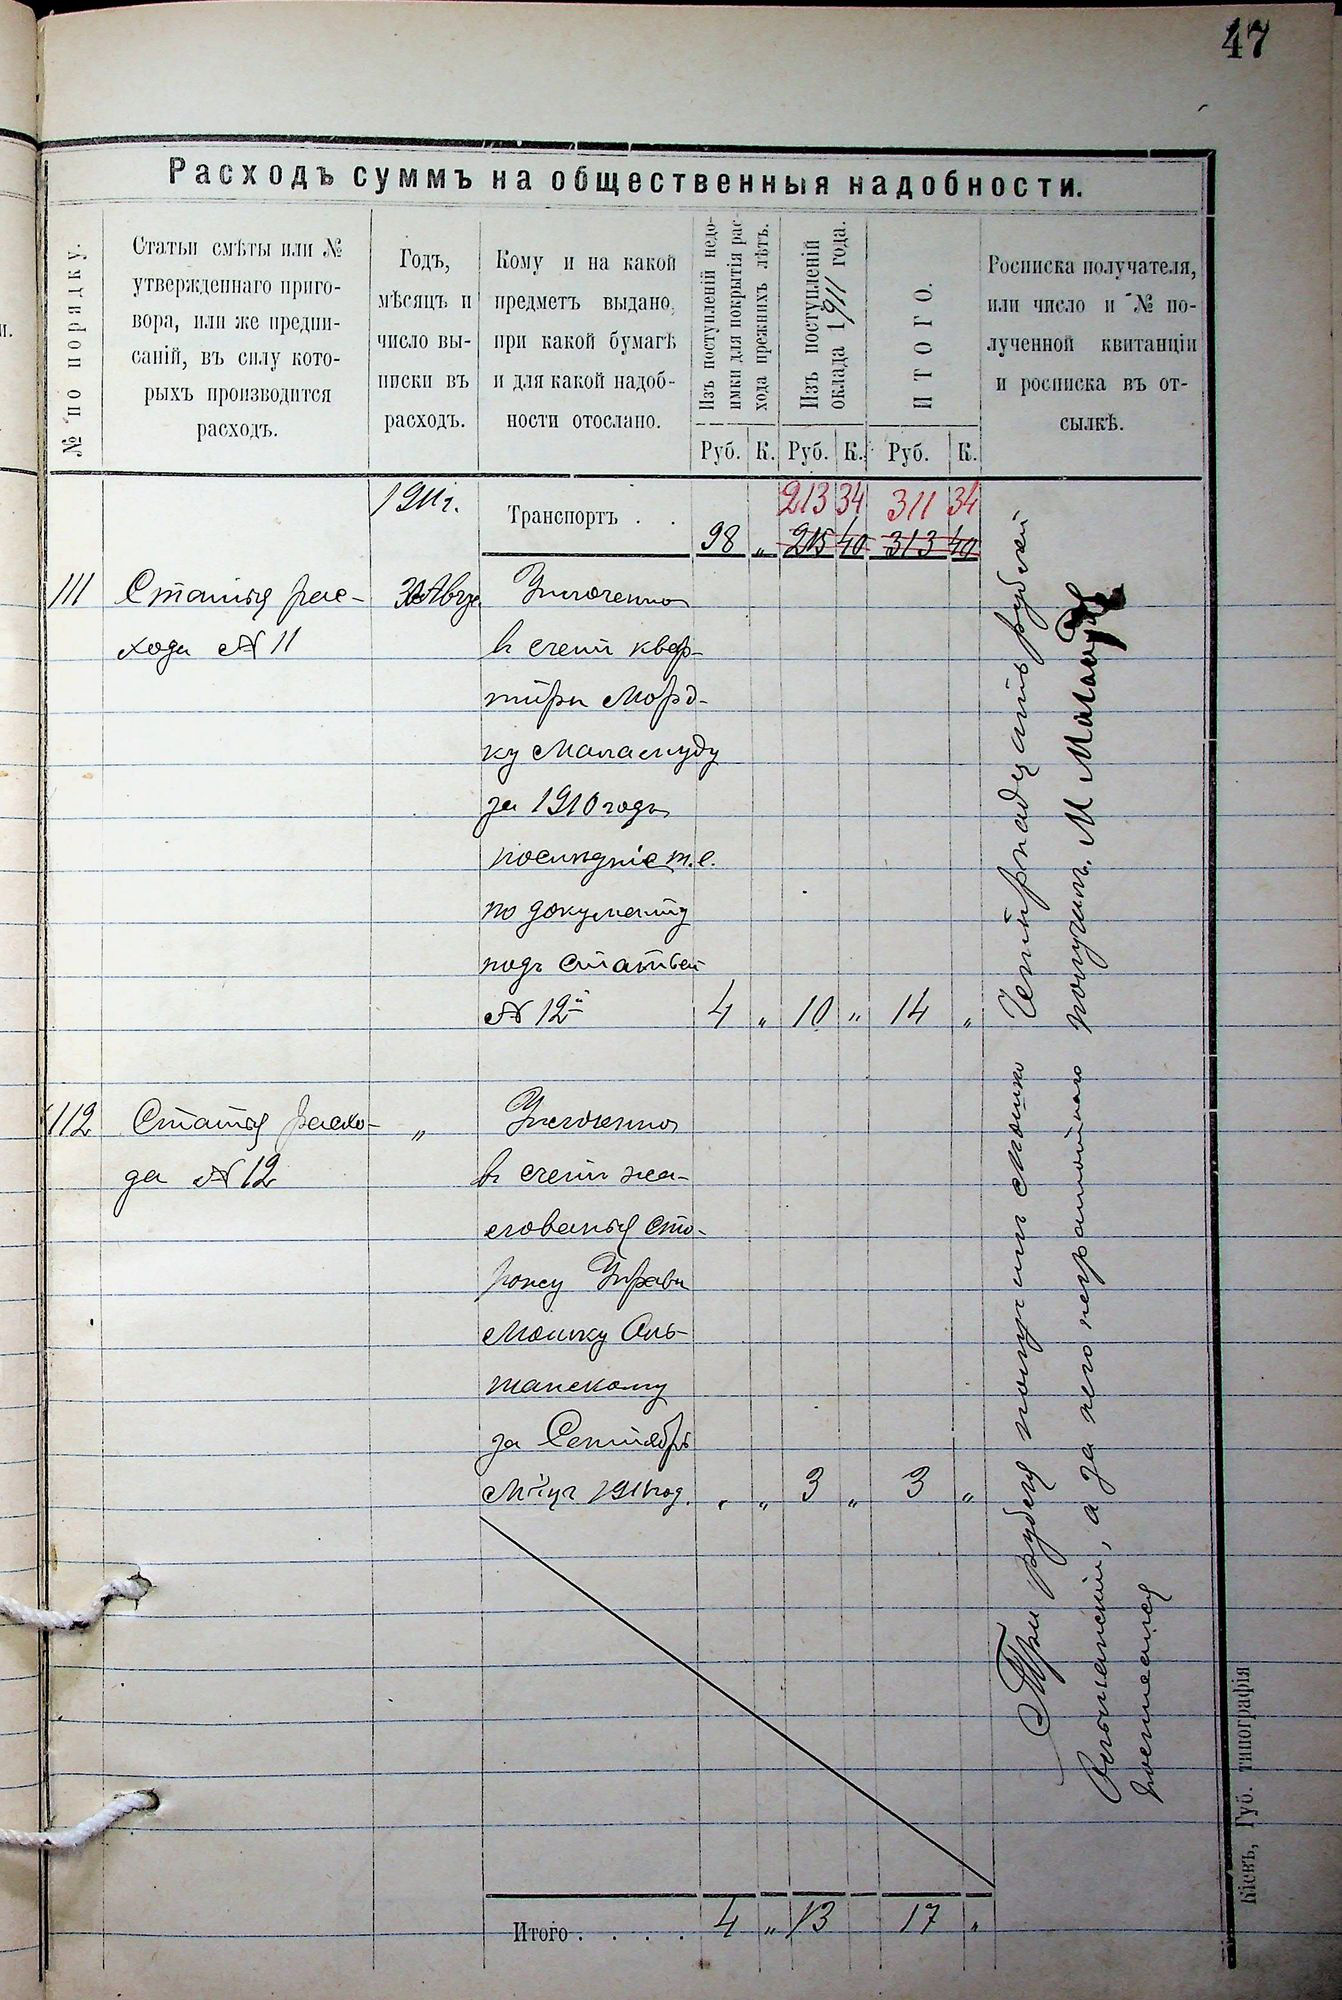 47
Расходъ суммъ на общественныя надобности.
№ по порядку.
Статьи смѣты или №
утвержденнаго приго-
вора, или же предпи-
саній, въ силу кото-
рыхъ производится
расходъ.
Годъ,
мѣсяцъ и
число вы-
писки въ
расходъ.
Кому и на какой
предметъ выдано,
при какой бумагѣ
и для какой надоб-
ности отослано.
Изъ поступленій недо-
имки для покрытія рас-
хода прежнихъ лѣтъ.
Изъ поступленій
оклада 1911 года.
ИТОГО.
Росписка получателя,
или число и № по-
лученной квитанціи
и росписка въ от-
сылкѣ.
Руб. К. Руб. К. Руб. К.
1911 г. Транспортъ . . 213 34 311 34
98 „ 215 40 313 40
111 Статья рас- 30 Авгу. Уплочено
хода № 11 в счетъ квар-
тиры Морд-
ку Маламуду
за 1910 годъ
послѣдніе т. е.
по документу
подъ статьей
№ 12й 4 „ 10 „ 14 „
Четырнадцать рублей
получилъ М Маламуд
112 Статья расхо- „ Уплочено
да № 12 в счетъ жа-
лованья сто-
рожу Управы
Мошку Оль-
шанскому
за Сентябрь
м-цъ 1911 год. „ „ 3 „ 3 „
Три рубля получилъ Мошко
Ольшанскій, а за него неграмотнаго
росписался
Итого . . . . 4 „ 13 17 „
Кіевъ, Губ. типографія